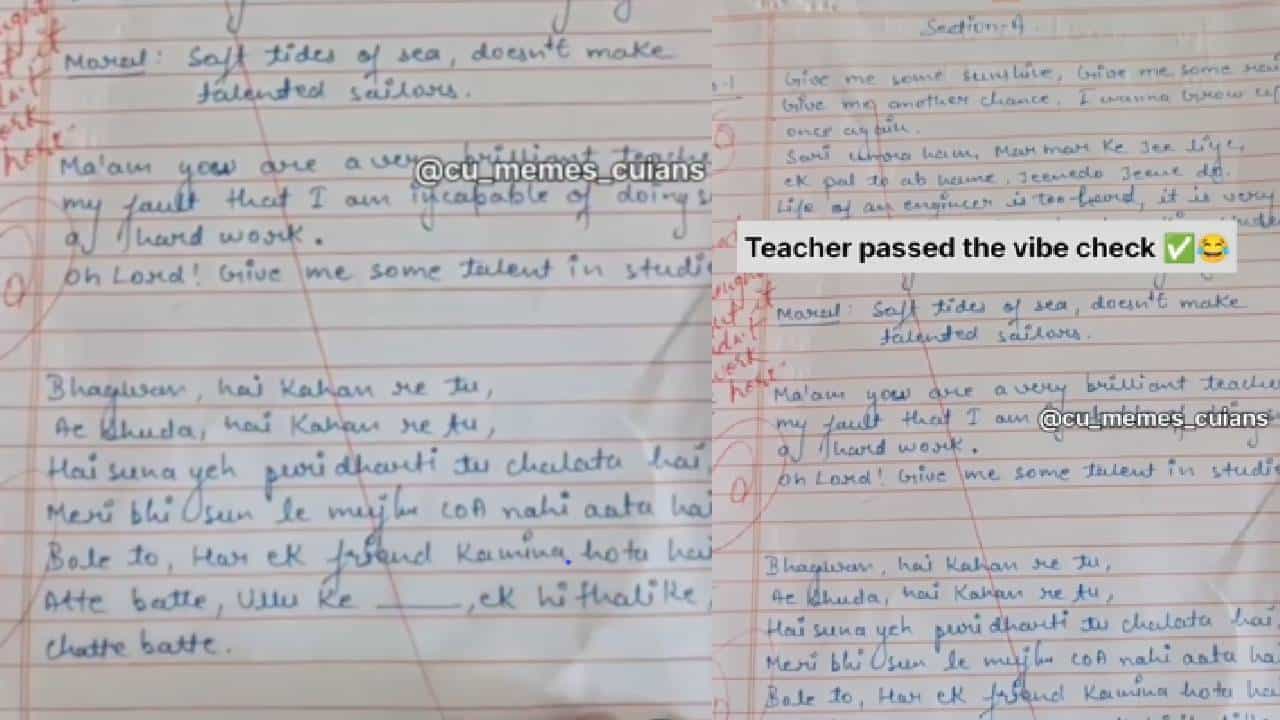 Moral: Soft tides of sea, doesn't make
talented sailors.
work
here
Ma'am you are a very brilliant teache
@cu_memes_cuians
my fault that I am incapable of doing s
of hard work.
Oh Lord! Give me some talent in studi
Bhagwan, hai Kahan re tu,
Ae khuda, hai Kahan re tu,
Hai suna yeh puri dharti tu chalata hai
Meri bhi sun le mujhe COA nahi aata hai
Bole to, Har ek friend Kamina hota hai
Atte batte, Ullu ke ____, ek hi thali ke
chatte batte.
Section-A
Give me some sunshine, Give me some rai
Give me another chance, I wanna Grow up
once again.
Sari umra ham, Mar mar ke jee liye,
ek pal to ab hame, Jeenedo Jeene do.
Life of an engineer is too hard, it is very
Teacher passed the vibe check ✅😂
Moral: Soft tides of sea, doesn't make
talented sailors.
work
here
Ma'am you are a very brilliant teache
my fault that I am
@cu_memes_cuians
of hard work.
Oh Lord! Give me some talent in studi
Bhagwan, hai Kahan re tu,
Ae khuda, hai Kahan re tu,
Hai suna yeh puri dharti tu chalata hai
Meri bhi sun le mujhe COA nahi aata ha
Bole to, Har ek friend Kamina hota ha